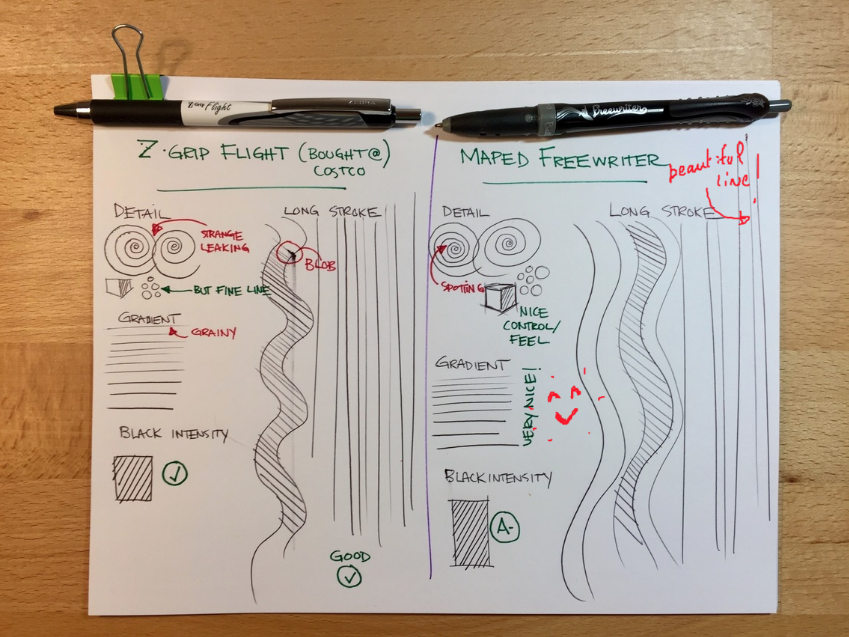 Z-Grip Flight
Freewriter
Z-GRIP FLIGHT (BOUGHT@)
COSTCO
DETAIL
LONG STROKE
STRANGE
LEAKING
BLOB
BUT FINE LINE
GRADIENT
GRAINY
BLACK INTENSITY
GOOD
MAPED FREEWRITER
beautiful
line!
DETAIL
LONG STROKE
SPOTTING
NICE
CONTROL/
FEEL
GRADIENT
VERY NICE!
BLACK INTENSITY
A-